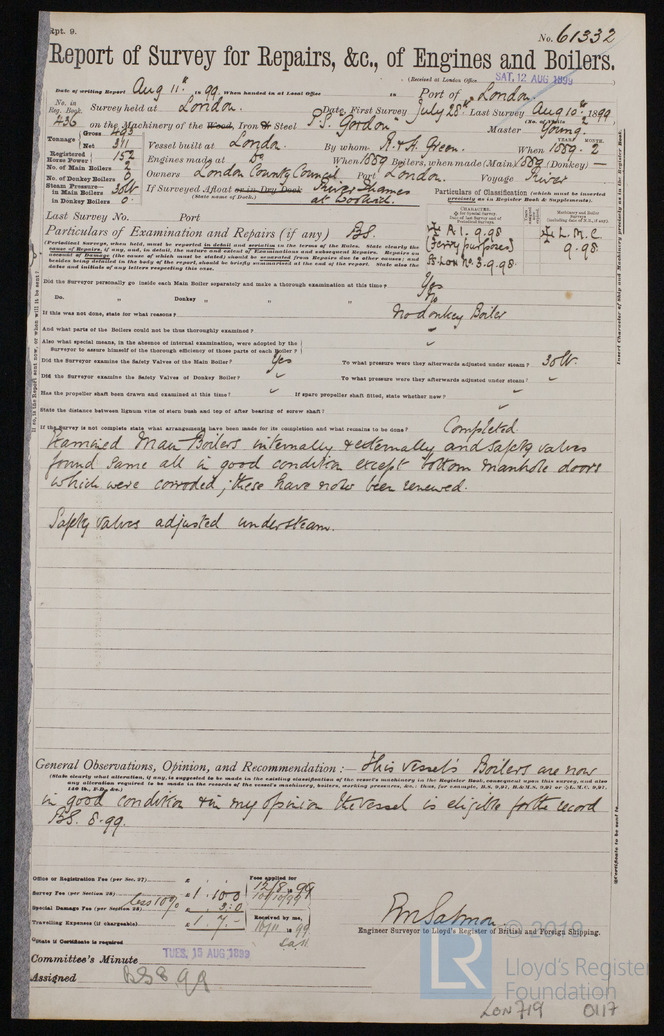 Rpt. 9.
No. 61332
Report of Survey for Repairs, &c., of Engines and Boilers.
(Received at London Office SAT. 12 AUG 1899
Date of writing Report Aug 11th 1899 When handed in at Local Office in Port of London.
No. in Reg. Book. Survey held at London. Date, First Survey July 28th Last Survey Aug 10th 1899
436 on the Machinery of the Wood, Iron or Steel P.S. Gordon (No. of Visits 2
Master Young.
Tonnage Gross 493 Net 311
Vessel built at London. By whom R & H Green. When 1889. 2
YEAR. MONTH.
Registered Horse Power 152
Engines made at Do When 1889 Boilers, when made (Main) 1889 (Donkey) —
No. of Main Boilers 2
No. of Donkey Boilers 0
Owners London County Council Port London. Voyage River
Steam Pressure— in Main Boilers 30lb. in Donkey Boilers 0.
If Surveyed Afloat or in Dry Dock River Thames at Woolwich.
(State name of Dock.)
Particulars of Classification (which must be inserted precisely as in Register Book & Supplements).
Last Survey No. Port
Particulars of Examination and Repairs (if any) BS.
CHARACTER.
A 1. 9.98
(Ferry purposes)
SS Lon No. 3. 9.98
L.M.C.
9.98.
(Periodical Surveys, when held, must be reported in detail and seriatim in the terms of the Rules. State clearly the
cause of Repairs, if any, and, in detail, the nature and extent of Examinations and subsequent Repairs. Repairs on
account of Damage (the cause of which must be stated) should be separated from Repairs due to other causes; and
besides being detailed in the body of the report, should be briefly summarised at the end of the report. State also the
dates and initials of any letters respecting this case.
Did the Surveyor personally go inside each Main Boiler separately and make a thorough examination at this time? Yes
Do. " Donkey " " " " No
If this was not done, state for what reasons? No Donkey Boiler
And what parts of the Boilers could not be thus thoroughly examined?
Also what special means, in the absence of internal examination, were adopted by the
Surveyor to assure himself of the thorough efficiency of those parts of each Boiler?
Did the Surveyor examine the Safety Valves of the Main Boiler? Yes To what pressure were they afterwards adjusted under steam? 30lb.
Did the Surveyor examine the Safety Valves of Donkey Boiler? To what pressure were they afterwards adjusted under steam?
Has the propeller shaft been drawn and examined at this time? If spare propeller shaft fitted, state whether new?
State the distance between lignum vitæ of stern bush and top of after bearing of screw shaft?
If the Survey is not complete state what arrangements have been made for its completion and what remains to be done? Completed
Examined Main Boilers internally & externally and safety valves
found same all in good condition except bottom manhole doors
which were corroded; these have now been renewed.
Safety valves adjusted under steam.
General Observations, Opinion, and Recommendation:— This vessel's Boilers are now
(State clearly what alteration, if any, is suggested to be made in the existing classification of the vessel's machinery in the Register Book, consequent upon this survey, and also
any alteration required to be made in the records of the vessel's machinery, boilers, working pressures, &c.: thus, for example, B.S. 9,91, B.&M.S. 9,91 or L.M.C. 9,91,
140 lb., F.D. &c.)
in good condition & in my opinion the vessel is eligible for the record
BS. 8.99.
Office or Registration Fee (per Sec. 27) £ : :
Survey Fee (per Section 28) £ 1 . 10 . 0
less 10%
Special Damage Fee (per Section 28) £ 3 . 0
Travelling Expenses (if chargeable) £ 1 . 7 . -
Fees applied for
12/8 1899
Received by me,
10/11 1899
*State if Certificate is required
Engineer Surveyor to Lloyd's Register of British and Foreign Shipping.
Committee's Minute TUES. 15 AUG 1899
Assigned BS 8 99
© 2019
LR
Lloyd's Register
Foundation
LON 719 0117